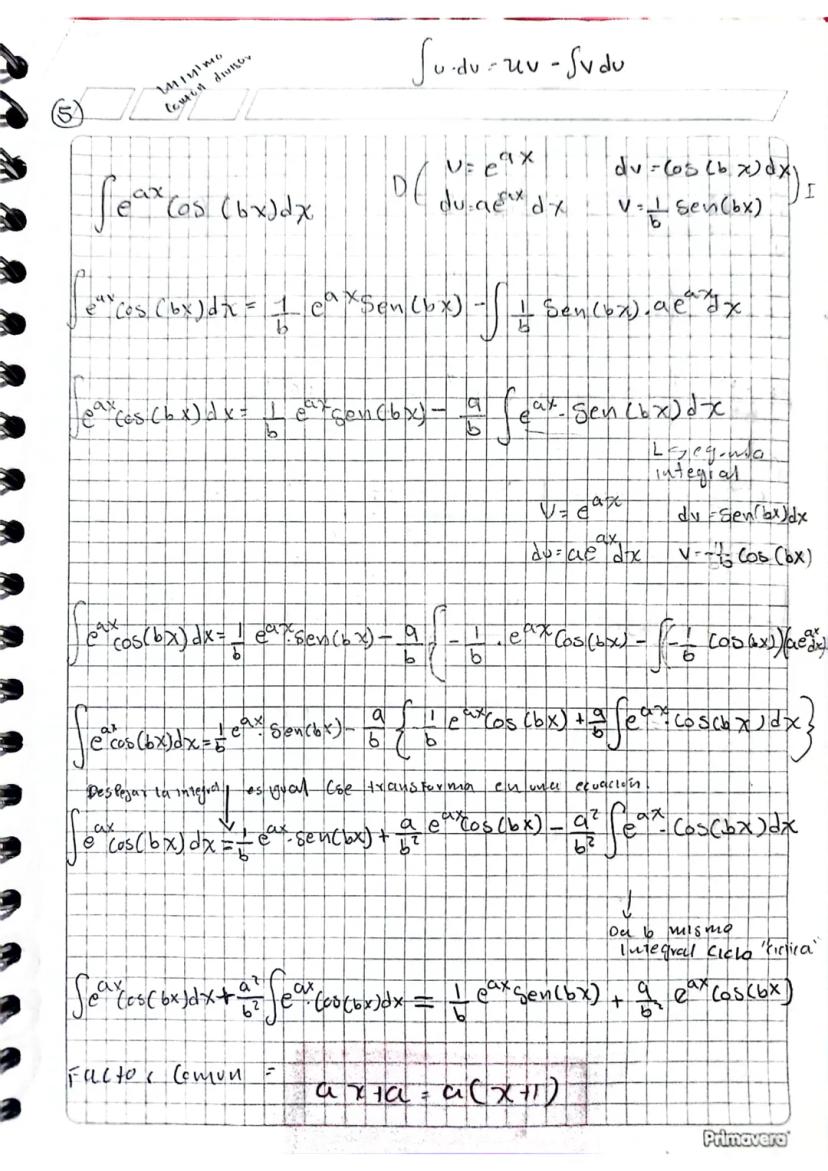 ∫u·dv = uv - ∫vdu
Minimo
Comun divisor
5
∫e^{ax} Cos (bx)dx
D( U= e^{ax} dv = Cos (bx)dx ) I
du=ae^{ax} dx V= 1/b Sen(bx)
∫e^{ax} cos (bx)dx = 1/b e^{ax} Sen(bx) - ∫ 1/b Sen(bx) . ae^{ax}dx
∫e^{ax} cos (bx)dx = 1/b e^{ax} sen(bx) - a/b ∫e^{ax} · Sen(bx)dx
↳ Segunda
integral
U= e^{ax} dv = Sen(bx)dx
du= ae^{ax}dx V= -1/b Cos (bx)
∫e^{ax} cos(bx)dx = 1/b e^{ax}·Sen(bx) - a/b { -1/b · e^{ax} Cos(bx) - ∫(-1/b Cos(bx))(ae^{ax}dx)
∫e^{ax} cos(bx)dx = 1/b e^{ax}· Sen(bx) - a/b { -1/b e^{ax} Cos (bx) + a/b ∫e^{ax}·Cos(bx)dx }
Despejar la integral es igual (se transforma en una ecuación.
∫e^{ax} cos(bx)dx = 1/b e^{ax}·sen(bx) + a/b² e^{ax} Cos(bx) - a²/b² ∫e^{ax}·Cos(bx)dx
↓
Da lo mismo
Integral ciclo "ciclica"
∫e^{ax} Cos(bx)dx + a²/b² ∫e^{ax}·Cos(bx)dx = 1/b e^{ax} Sen(bx) + a/b² e^{ax} Cos(bx)
Factor Comun = ax+a = a(x+1)
Primavera